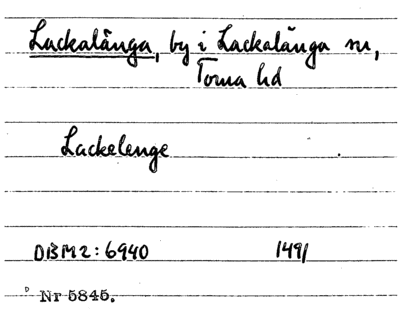 Lackalänga, by i Lackalänga sn,
Torna hd
Lackelenge
DBM2:6940 1491
D Nr 5845.